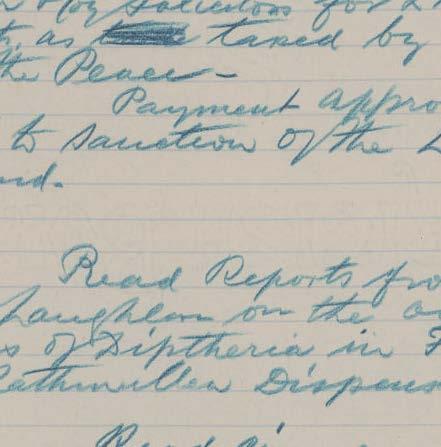 Solicitors for
as taxed by
the Peace -
Payment appro
to sanction of the L
nd.
Read Reports fro
Laughlin on the
s of Diptheria in
Rathmullen Dispens
Read